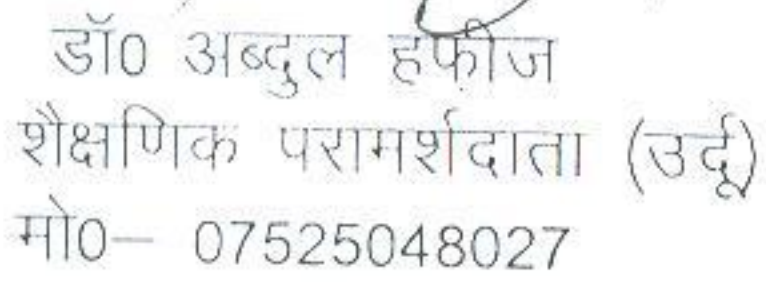 डॉ0 अब्दुल हफीज
शैक्षणिक परामर्शदाता (उर्दू)
मो0– 07525048027